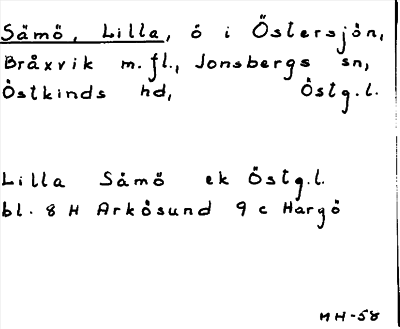 Såmö, Lilla, ö i Östersjön,
Bråxvik m.fl., Jonsbergs sn,
Östkinds hd, Östg.l.
Lilla Såmö ek Östg.l.
bl. 8 H Arkösund 9 c Hargö
MH-58